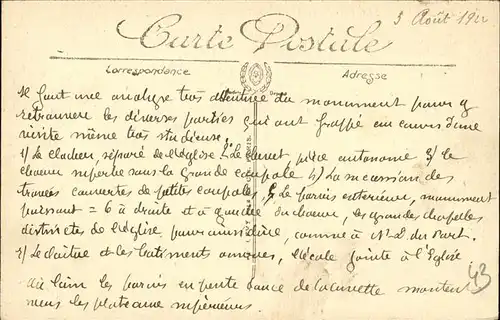 3 Août 1922
Carte Postale
Correspondance
Adresse
Il faut une analyse très attentive du monument pour y
retrouver les diverses parties qui ont frappé au cours d'une
visite même très studieuse.
1/ Le clocher, séparé de l'église 2° Le chevet pièce autonome 3/ le
choeur superbe sous la grande coupole 4/ La succession des
travées couvertes de petites coupoles, 5/ Le parvis extérieur, monument
puissant = 6 à droite et à gauche du choeur, les grandes chapelles
distinctes de l'église, pour ainsi dire, comme à N.D. du Port.
7/ Le cloître et les bâtiments annexes, l'école jointe à l'Eglise
au loin les parois en pente de la cuvette montent
vers les plateaux supérieurs.
43